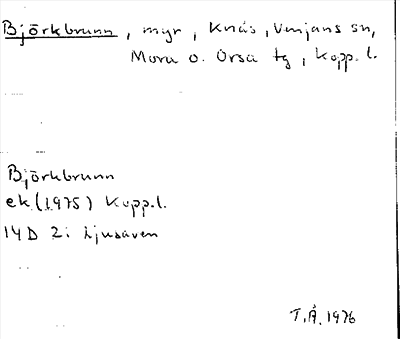 Björkbrunn, myr, Knås, Venjans sn,
Mora o. Orsa tg, Kopp. l.
Björkbrunn
ek (1975) Kopp. l.
14D 2i Ljusåven
T.Å. 1976